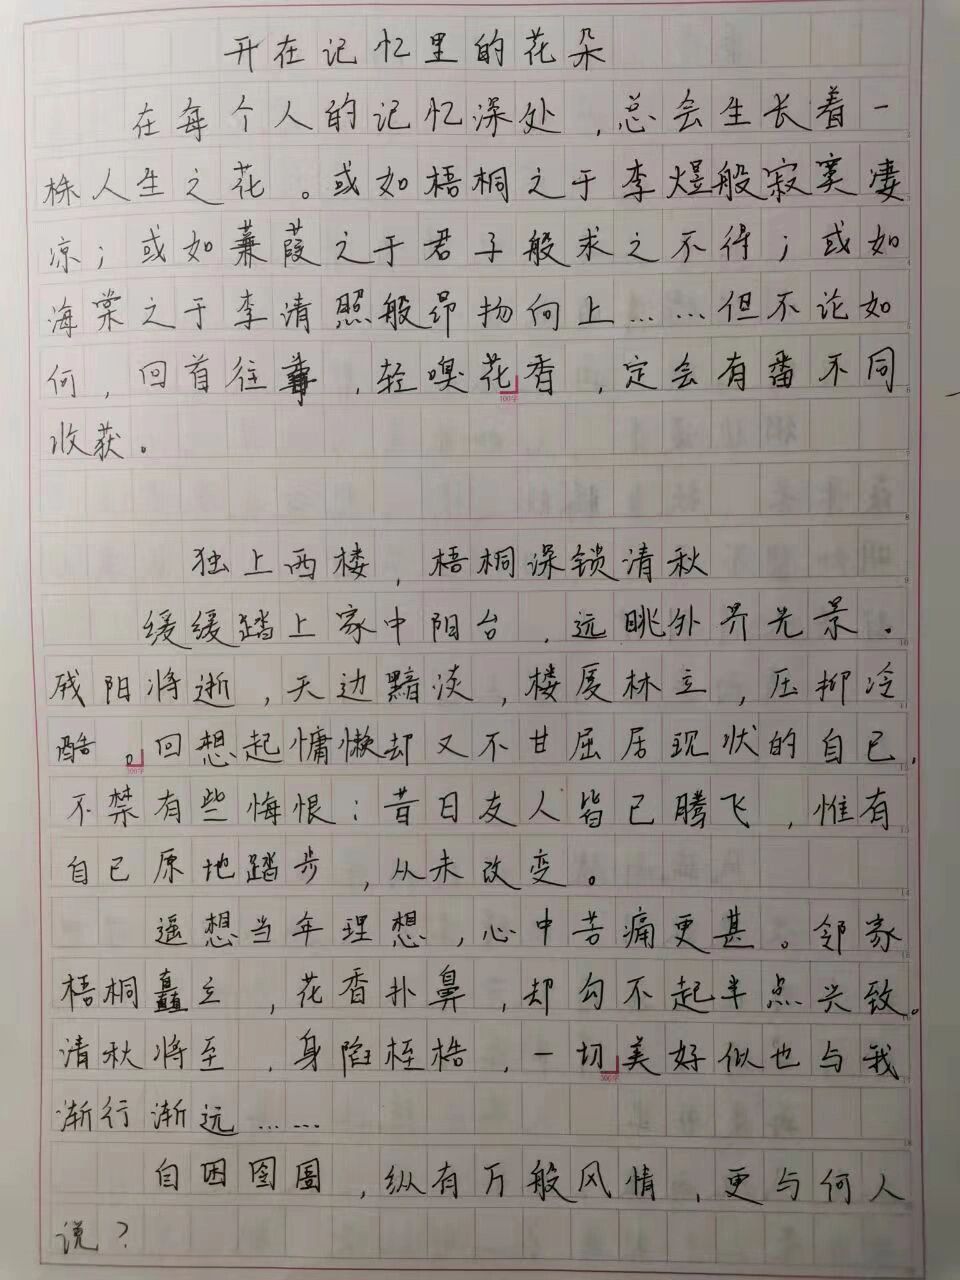 开在记忆里的花朵
在每个人的记忆深处,总会生长着一
株人生之花。或如梧桐之于李煜般寂寞凄
凉;或如蒹葭之于君子般求之不得;或如
海棠之于李清照般昂扬向上……但不论如
何,回首往尊,轻嗅花香,定会有番不同
100字
收获。
独上西楼,梧桐深锁清秋
缓缓踏上家中阳台,远眺外界光景。
残阳将逝,天边黯淡,楼厦林立,压抑冷
酷。回想起慵懒却又不甘屈居现状的自己,
200字
不禁有些悔恨:昔日友人皆已腾飞,惟有
自己原地踏步,从未改变。
遥想当年理想,心中苦痛更甚。邻家
梧桐矗立,花香扑鼻,却勾不起半点兴致。
清秋将至,身陷桎梏,一切美好似也与我
300字
渐行渐远……
自困囹圄,纵有万般风情,更与何人
说?